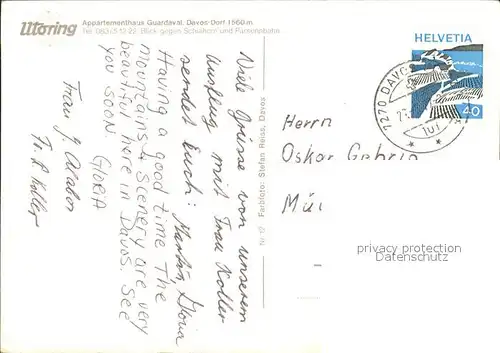 Utoring
Appartementhaus Guardaval, Davos-Dorf 1560 m.
Tel. 083/5 13 22, Blick gegen Schiahorn und Parsennbahn
HELVETIA
40
7270 DAVOS
Viele Grüsse von unserem
Ausflug mit Frau Koller
sendet Euch: Martha, Gloria
Having a good time. The
mountains & scenery are very
beautiful here in Davos. See
you soon GLORIA
Frau J.
Fr. R Koller
Farbfoto: Stefan Reiss, Davos
Herrn
Oskar Gehrin
privacy protection
Datenschutz